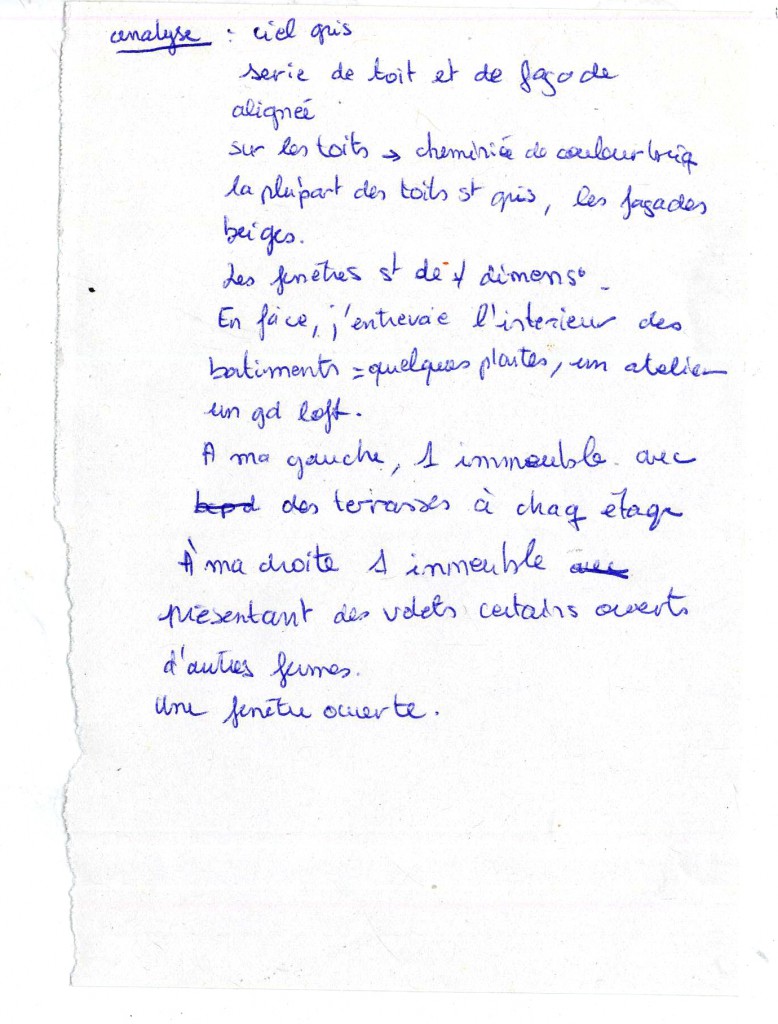 analyse : ciel gris
serie de toit et de façade
aligneé
sur les toits → cheminée de couleur briq
la plupart des toits st gris, les façades
beiges.
Les fenêtres st de ≠ dimens°
En face, j'entrevaie l'interieur des
batiments = quelques plantes, un atelier
un gd loft.
A ma gauche, 1 immeuble avec
des terrasses à chaq étage
À ma droite 1 immeuble
présentant des volets certains ouverts
d'autres fermes.
Une fenêtre ouverte.